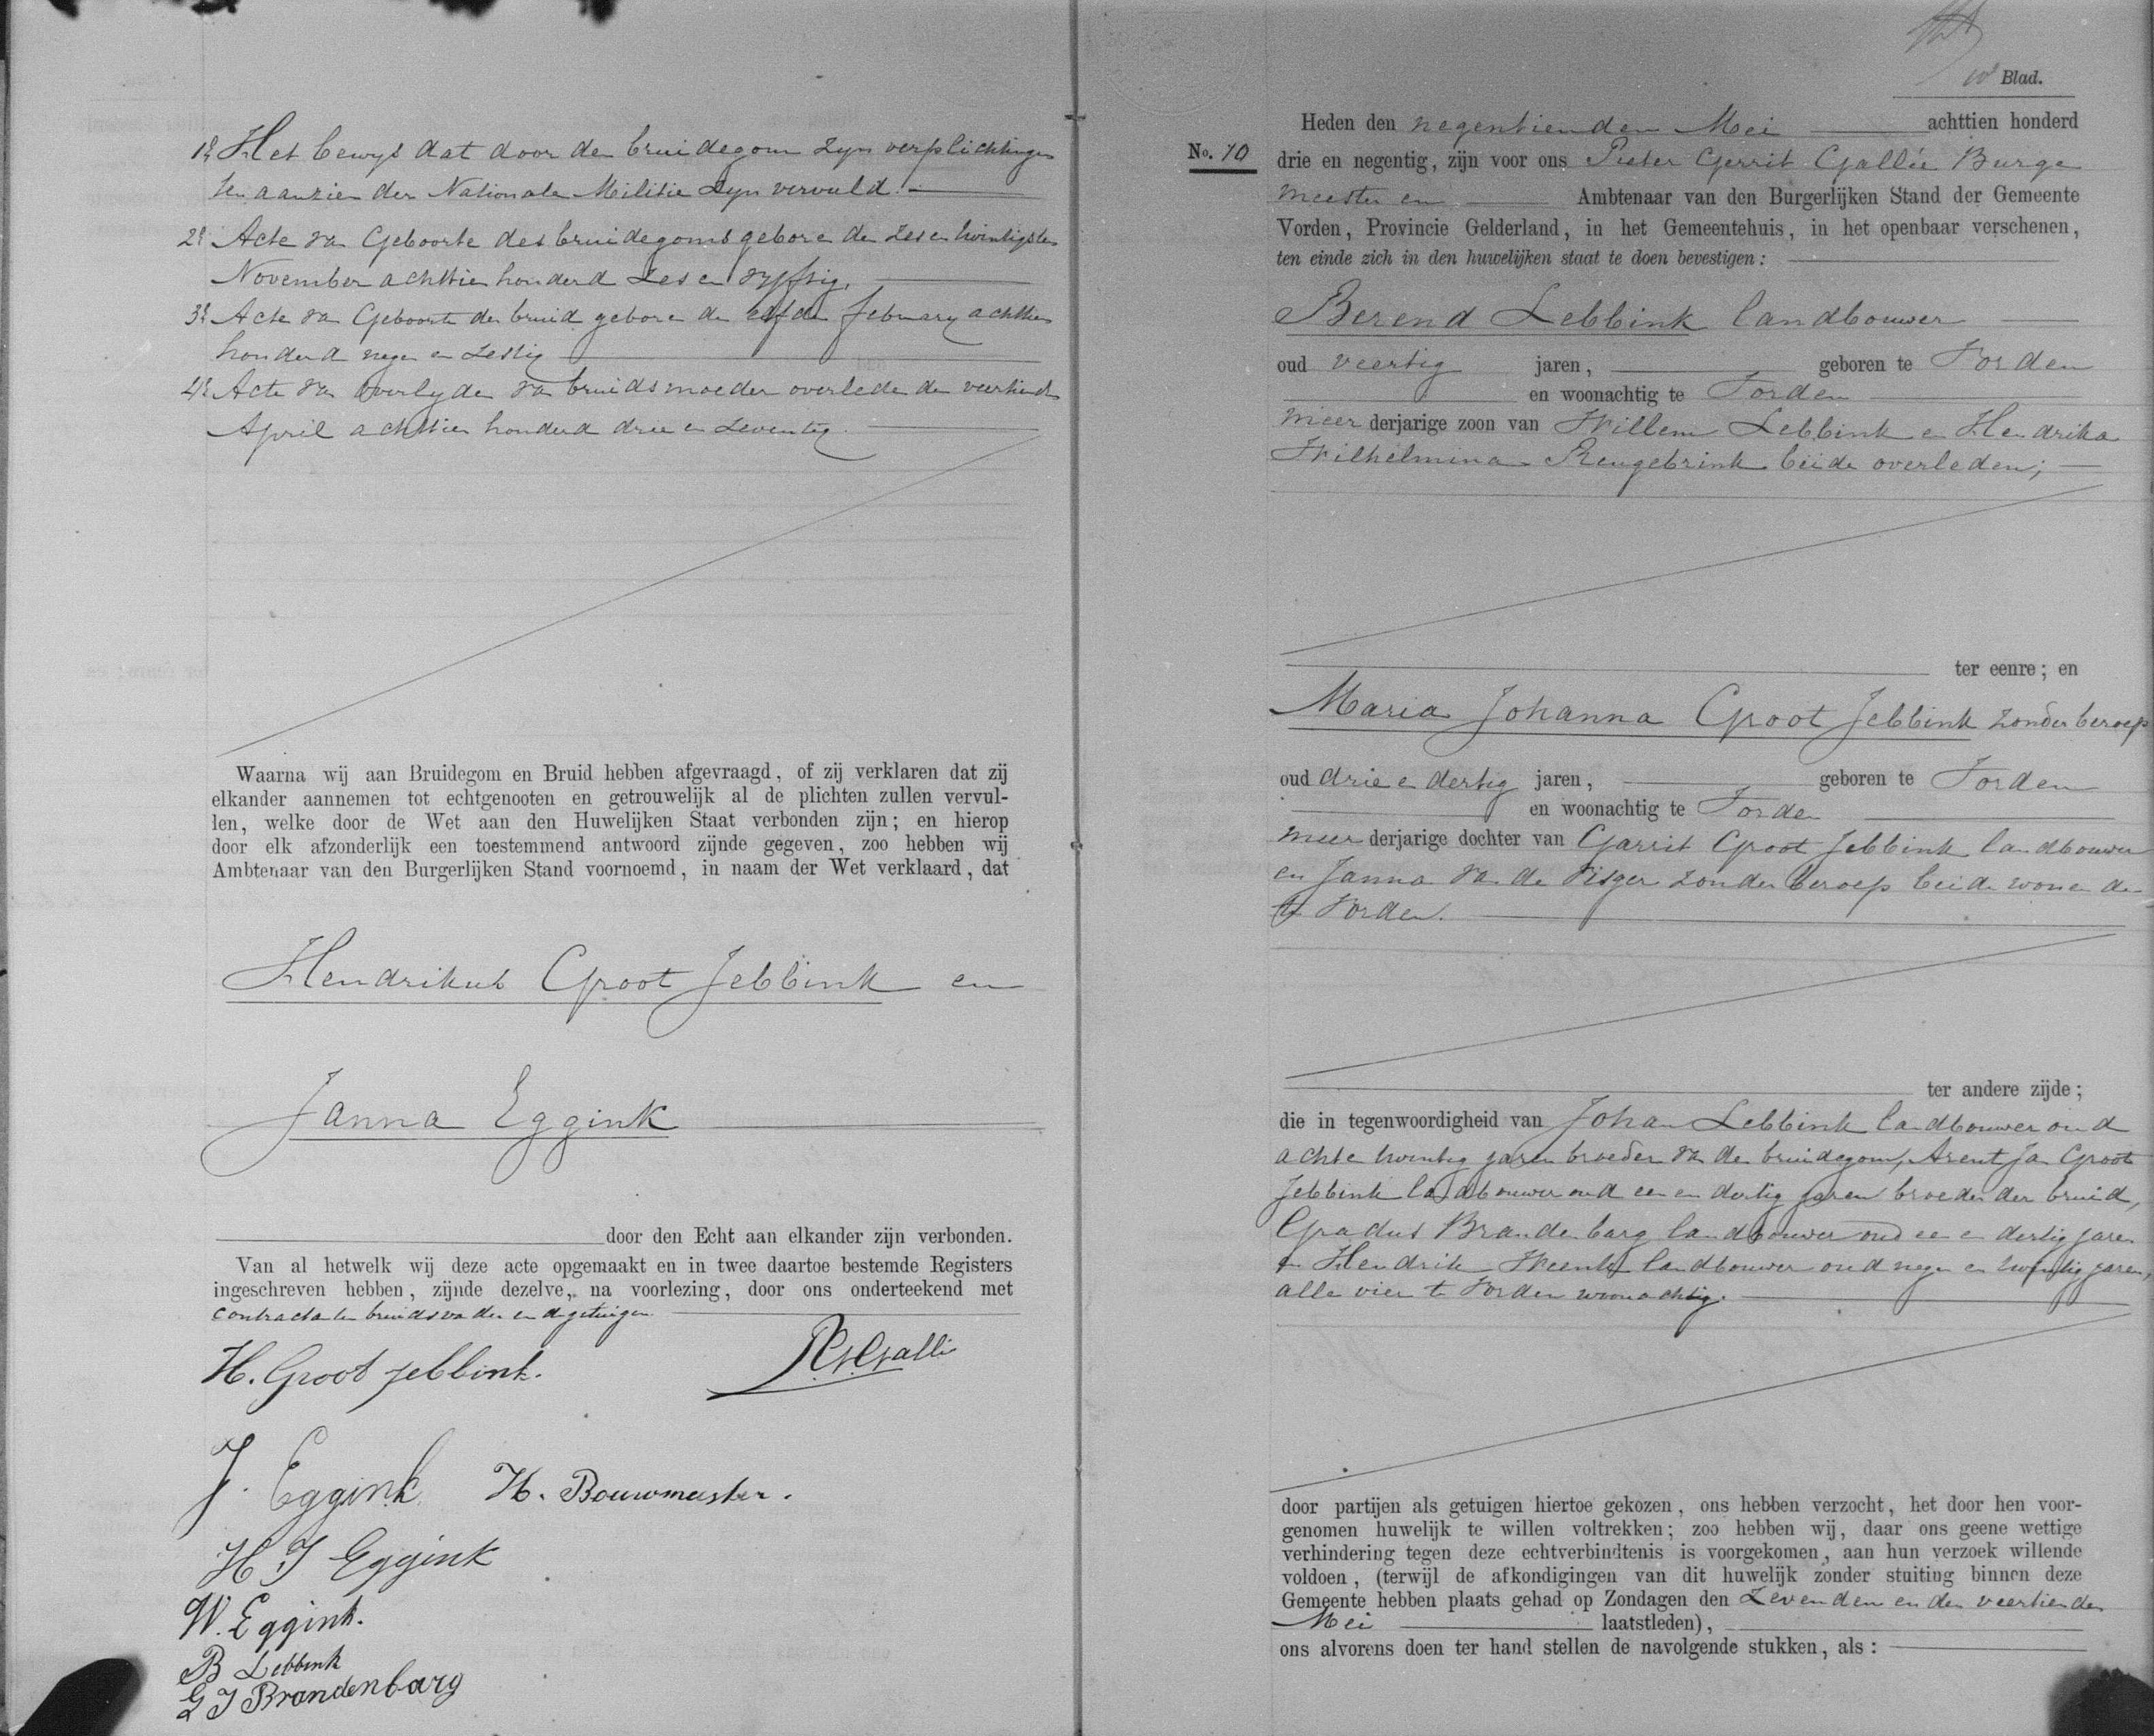 1º Het bewys dat door den bruidegom zyn verplichtingen
ten aanzien der Nationale Militie zyn vervuld.
2º Acte van Geboorte des bruidegoms geboren den zes en twintigsten
November achttien honderd zes en vyftig.
3º Acte van Geboorte der bruid geboren den elfden february achttien
honderd negen en zestig
4º Acte van overlyden van bruidsmoeder overleden den veertienden
April achttien honderd drie en zeventig.
Waarna wij aan Bruidegom en Bruid hebben afgevraagd, of zij verklaren dat zij
elkander aannemen tot echtgenooten en getrouwelijk al de plichten zullen vervul-
len, welke door de Wet aan den Huwelijken Staat verbonden zijn; en hierop
door elk afzonderlijk een toestemmend antwoord zijnde gegeven, zoo hebben wij
Ambtenaar van den Burgerlijken Stand voornoemd, in naam der Wet verklaard, dat
Hendrikus Groot Jebbink en
Janna Eggink
door den Echt aan elkander zijn verbonden.
Van al hetwelk wij deze acte opgemaakt en in twee daartoe bestemde Registers
ingeschreven hebben, zijnde dezelve, na voorlezing, door ons onderteekend met
contractanten bruidsvader en de getuigen
H. Groot Jebbink. PGGallée
J. Eggink H. Bouwmeester.
H J Eggink
W. Eggink.
B Lebbink
G J Brandenbarg
Blad.
Heden den negentienden Mei achttien honderd
No. 10 drie en negentig, zijn voor ons Pieter Gerrit Gallée Burge
meester en Ambtenaar van den Burgerlijken Stand der Gemeente
Vorden, Provincie Gelderland, in het Gemeentehuis, in het openbaar verschenen,
ten einde zich in den huwelijken staat te doen bevestigen:
Berend Lebbink landbouwer
oud veertig jaren, geboren te Vorden
en woonachtig te Vorden
meer derjarige zoon van Willem Lebbink en Hendrika
Wilhelmina Rengebrink beide overleden;
ter eenre; en
Maria Johanna Groot Jebbink zonder beroep
oud drie en dertig jaren, geboren te Vorden
en woonachtig te Vorden
meer derjarige dochter van Garrit Groot Jebbink landbouwer
en Janna van de Visger zonder beroep beide wonende
te Vorden.
ter andere zijde;
die in tegenwoordigheid van Johan Lebbink landbouwer oud
acht en twintig jaren broeder van den bruidegom, Arent Jan Groot
Jebbink landbouwer oud een en dertig jaren broeder der bruid,
Gradus Brandenbarg landbouwer oud een en dertig jaren
en Hendrik Weenk landbouwer oud negen en twintig jaren,
alle vier te Vorden woonachtig.
door partijen als getuigen hiertoe gekozen, ons hebben verzocht, het door hen voor-
genomen huwelijk te willen voltrekken; zoo hebben wij, daar ons geene wettige
verhindering tegen deze echtverbindtenis is voorgekomen, aan hun verzoek willende
voldoen, (terwijl de afkondigingen van dit huwelijk zonder stuiting binnen deze
Gemeente hebben plaats gehad op Zondagen den zevenden en den veertienden
Mei laatstleden),
ons alvorens doen ter hand stellen de navolgende stukken, als: